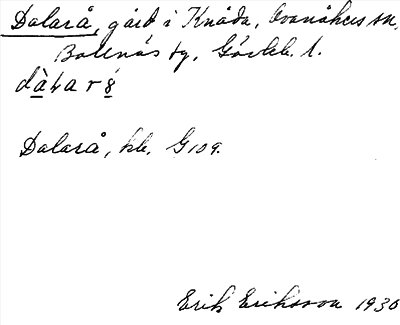 Dalarå, gård i Knåda, Ovanåkers sn,
Bollnäs tg, Gävleb. l.
dàƚarǻ
Dalarå, kb. G109.
Erik Eriksson 1930